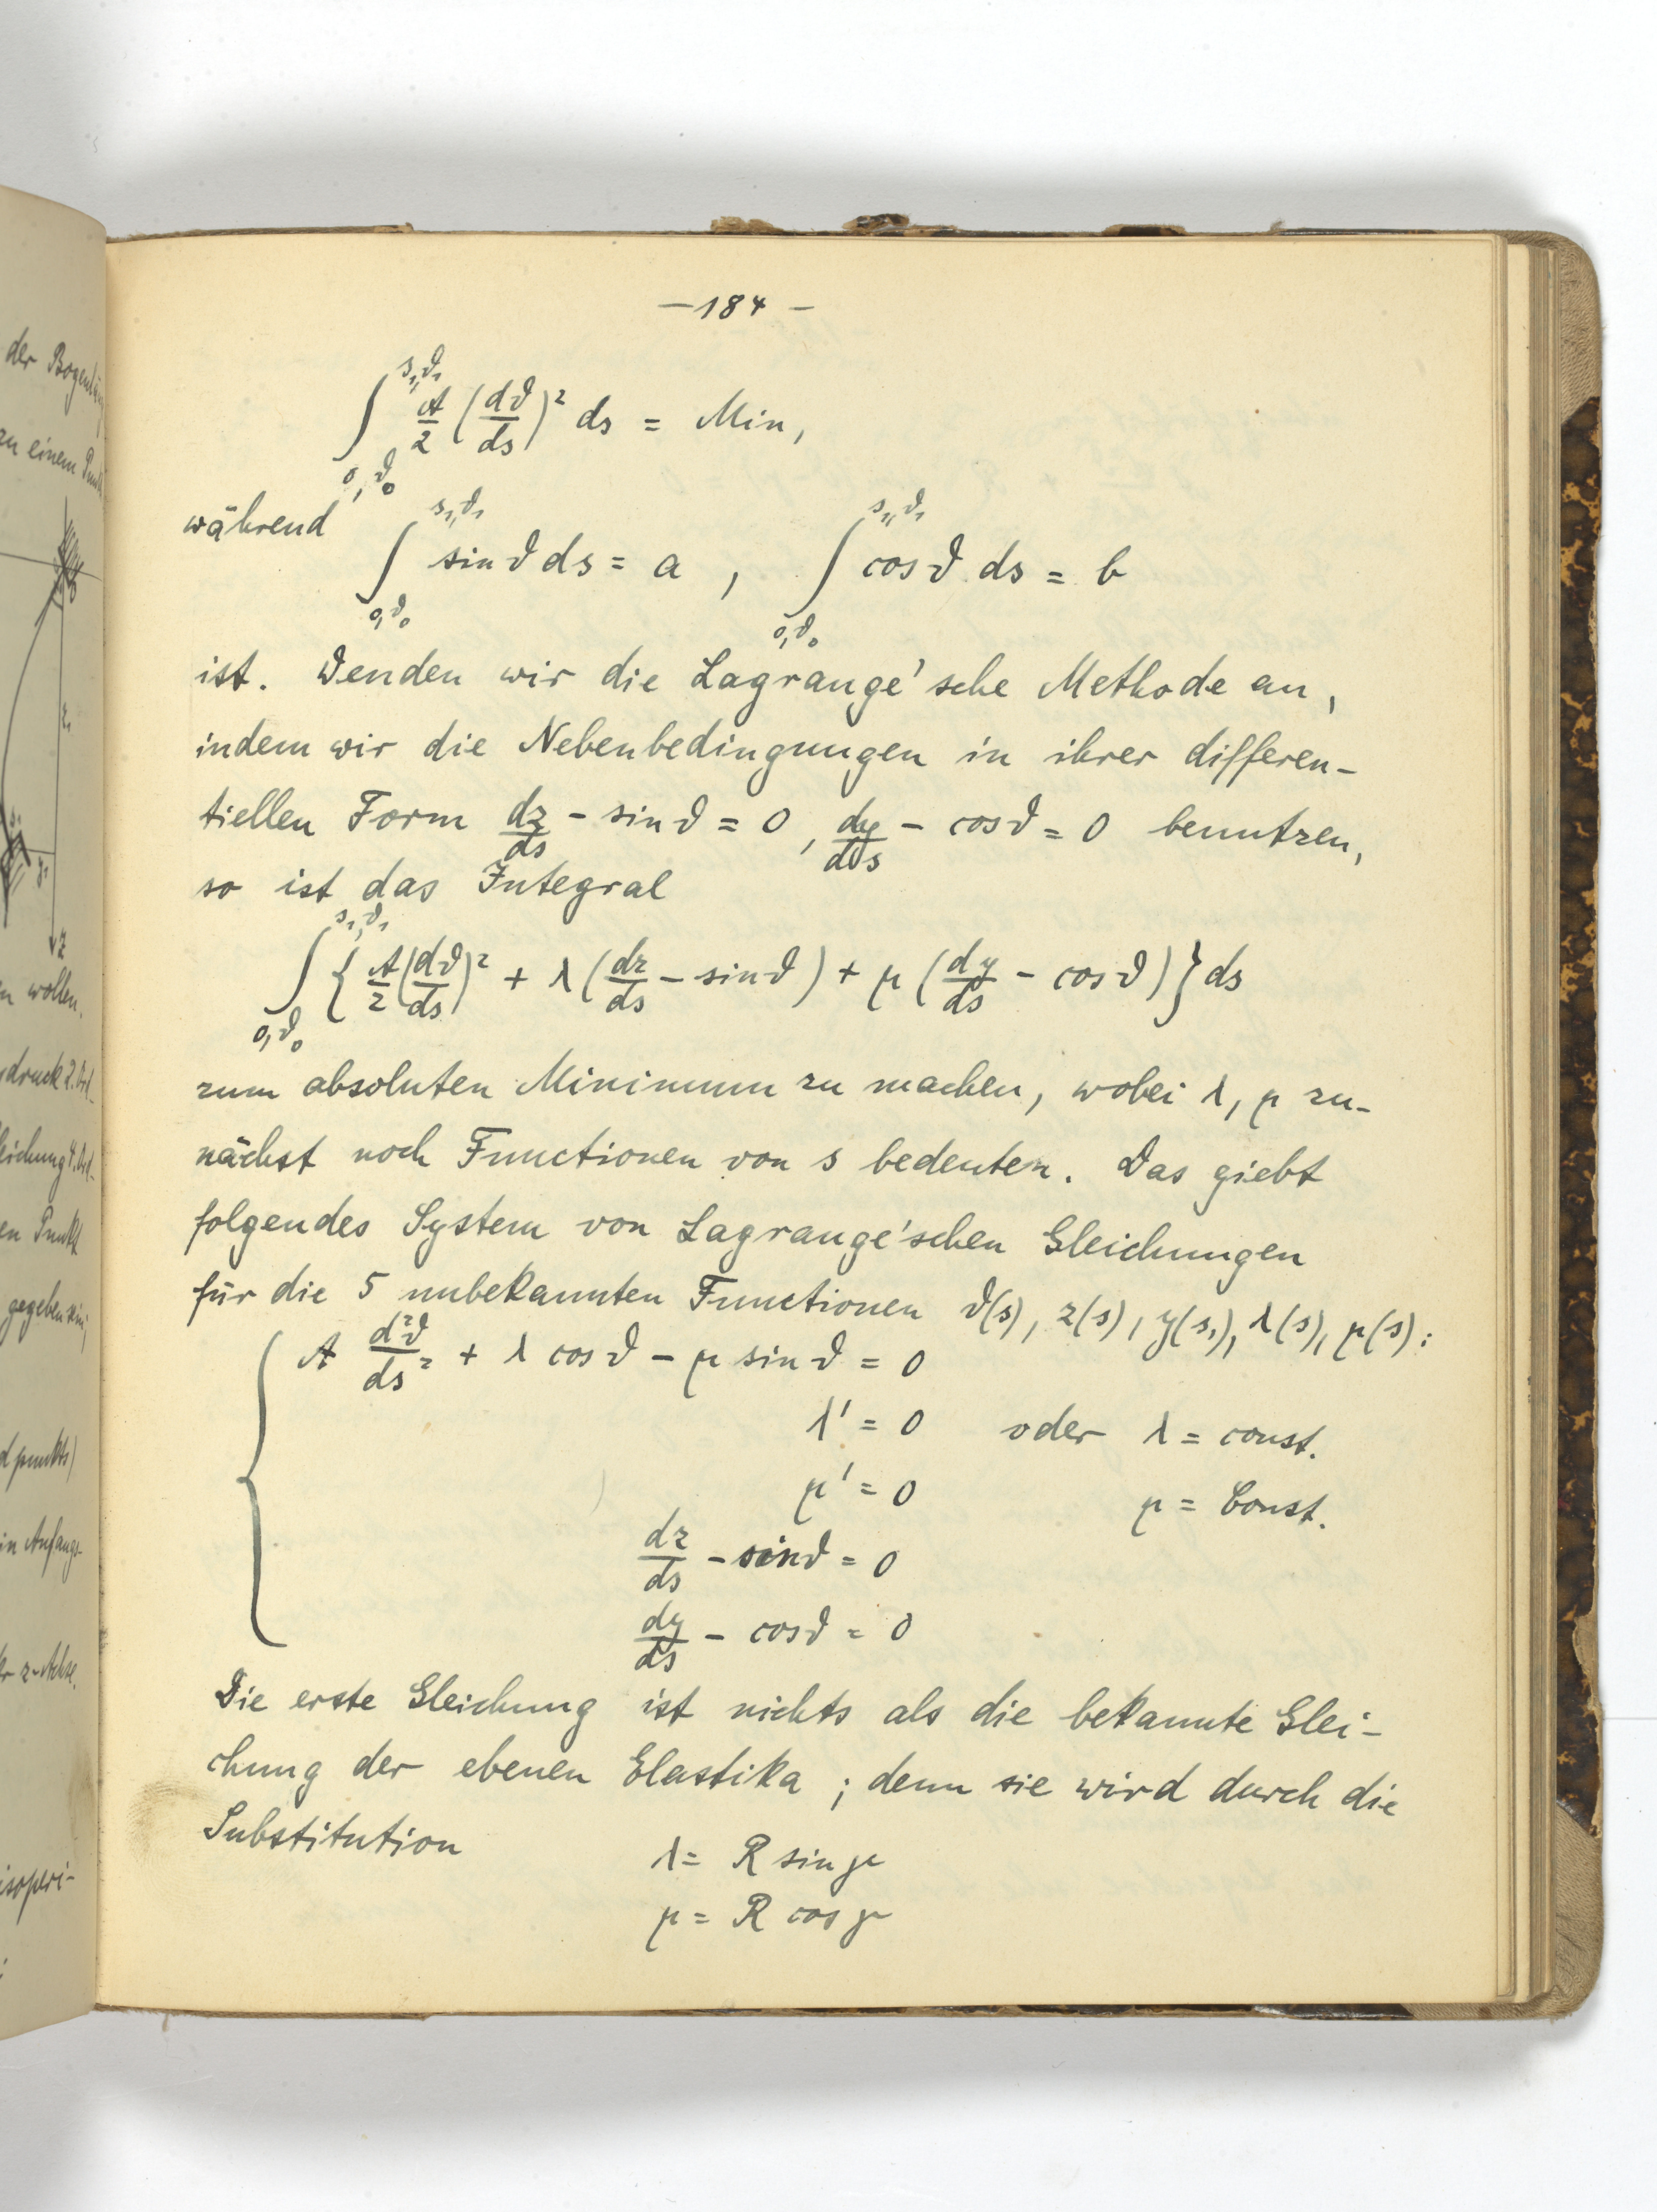 der Bogenlän
zu einem Punkt
z₁
y₁
z
en wollen.
druck 2. Ord-
leichung 4. Ord-
en Punkt
gegeben sein;
d punkts)
in Anfangs-
er z-Achse.
isoperi-
— 184 —
∫_{0,ϑ₀}^{s₁,ϑ₁} A/2 (dϑ/ds)² ds = Min,
während
∫_{0,ϑ₀}^{s₁,ϑ₁} sin ϑ ds = a , ∫_{0,ϑ₀}^{s₁,ϑ₁} cos ϑ ds = b
ist. Wenden wir die Lagrange'sche Methode an,
indem wir die Nebenbedingungen in ihrer differen-
tiellen Form dz/ds - sin ϑ = 0, dy/ds - cos ϑ = 0 benutzen,
so ist das Integral
∫_{0,ϑ₀}^{s₁,ϑ₁} { A/2 (dϑ/ds)² + λ (dz/ds - sin ϑ) + μ (dy/ds - cos ϑ) } ds
zum absoluten Minimum zu machen, wobei λ, μ zu-
nächst noch Functionen von s bedeuten. Das giebt
folgendes System von Lagrange'schen Gleichungen
für die 5 unbekannten Functionen ϑ(s), z(s), y(s,), λ(s), μ(s):
A d²ϑ/ds² + λ cos ϑ - μ sin ϑ = 0
λ' = 0 oder λ = const.
μ' = 0 μ = Const.
dz/ds - sin ϑ = 0
dy/ds - cos ϑ = 0
Die erste Gleichung ist nichts als die bekannte Glei-
chung der ebenen Elastika ; denn sie wird durch die
Substitution
λ = R sin γ
μ = R cos γ